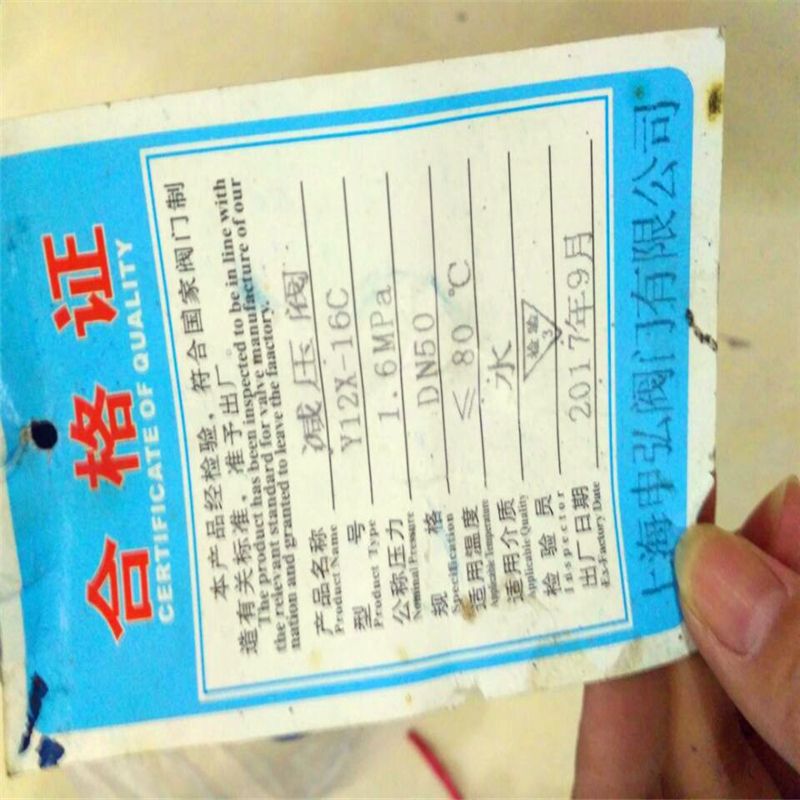 合格证
CERTIFICATE OF QUALITY
本产品经检验，符合国家阀门制
造有关标准，准予出厂。
The product has been inspected to be in line with
the relevant standard for valve manufacture of our
nation and granted to leave the faactory.
产品名称 减压阀
Product Name
型号 Y12X-16C
Product Type
公称压力 1.6MPa
Nominal Pressure
规格 DN50
Specification
适用温度 ≤80℃
Applicable Temperature
适用介质 水
Applicable Quality
检验员 检验 3
Inspector
出厂日期 2017年9月
Ex-Factory Date
上海申弘阀门有限公司